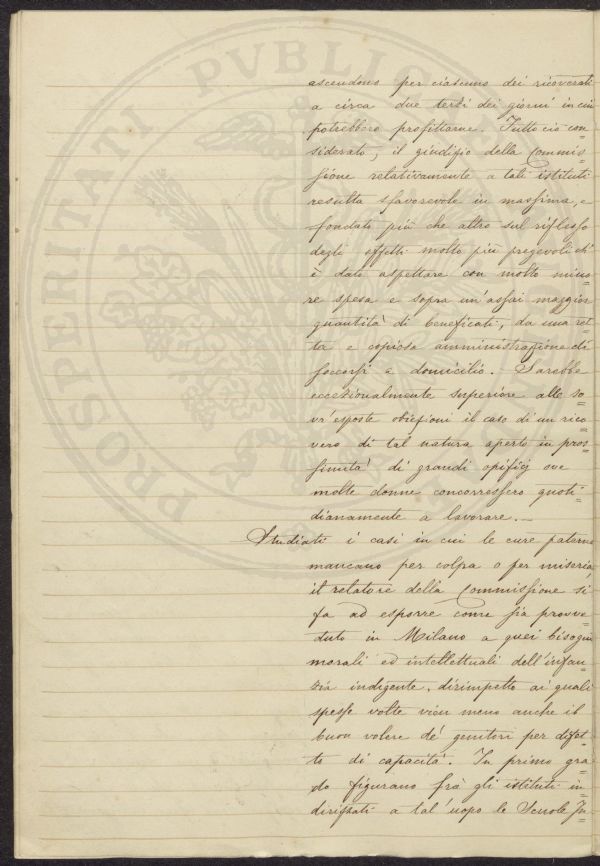 ascendono per ciascuno dei ricoverati
a circa due terzi dei giorni in cui
potrebbero profittarne. Tutto ciò con=
siderato, il giudizio della Commis=
sione relativamente a tali istituti
resulta sfavorevole in massima, e
fondato più che altro sul riflesso
degli effetti molto più pregevoli ch'
è dato aspettare con molto mino=
re spesa e sopra un'assai maggior
quantità di beneficati, da una ret=
ta e copiosa amministrazione di
soccorsi a domicilio. Sarebbe
eccezionalmente superiore alle so=
vr'esposte obiezioni il caso di un rico=
vero di tal natura aperto in pros=
simità di grandi opifizj ove
molte donne concorressero quoti=
dianamente a lavorare. _
Studiati i casi in cui le cure paterne
mancano per colpa o per miseria,
il relatore della Commissione si
fa ad esporre come sia provve=
duto in Milano a quei bisogni
morali ed intellettuali dell'infan=
zia indigente, dirimpetto ai quali
spesse volte vien meno anche il
buon volere de' genitori per difet=
to di capacità. In primo gra=
do figurano frà gli istituti in=
dirizzati a tal'uopo le Scuole In=
PROSPERITATI PVBLICAE